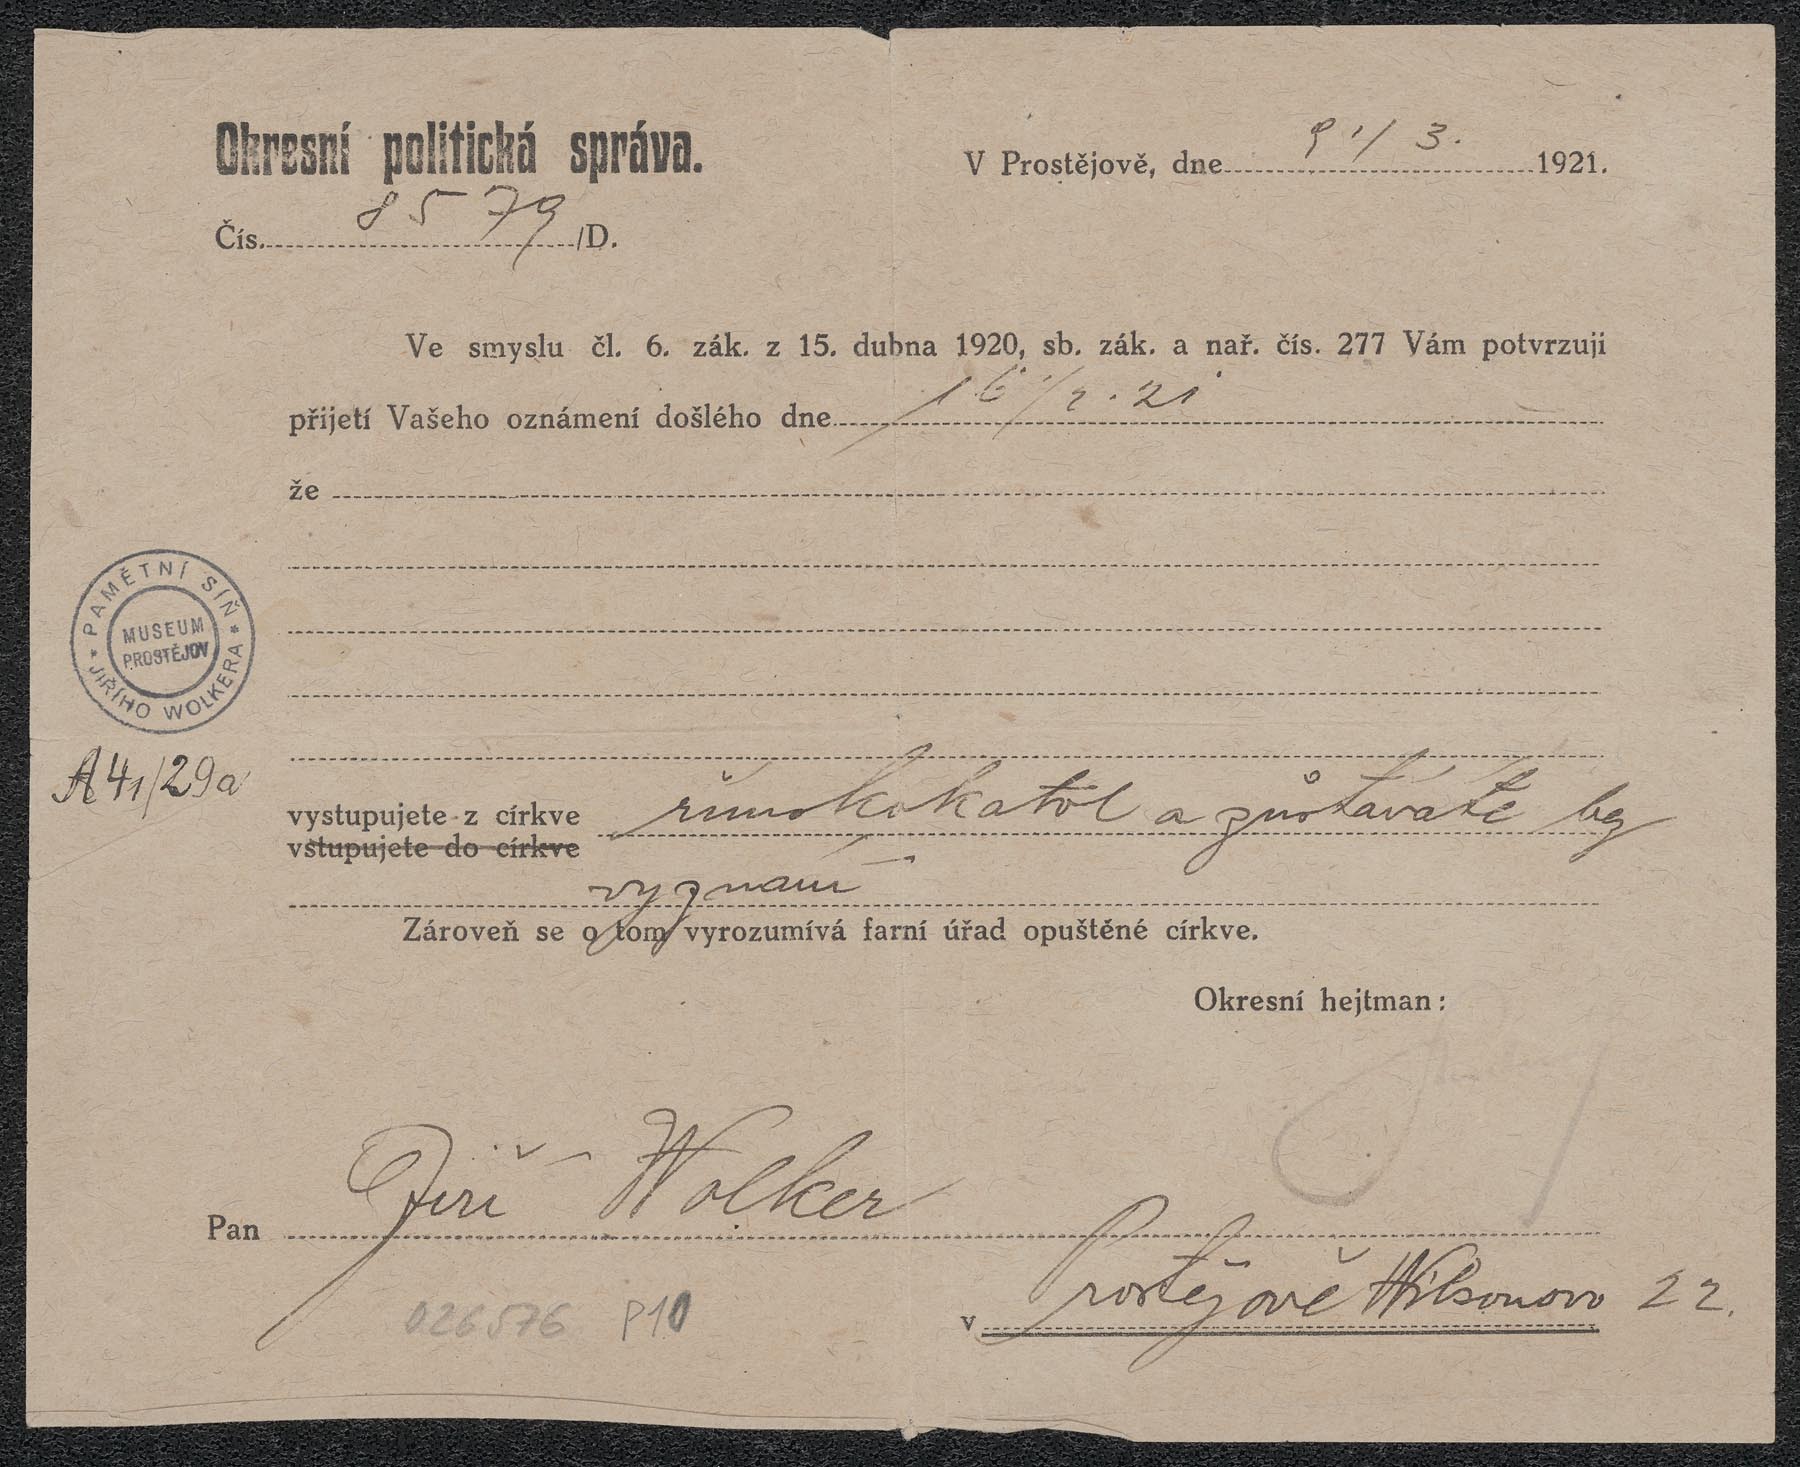 Okresní politická správa.
V Prostějově, dne 9./3. 1921.
Čís. 8579/D.
Ve smyslu čl. 6. zák. z 15. dubna 1920, sb. zák. a nař. čís. 277 Vám potvrzuji
přijetí Vašeho oznámení došlého dne 16/2.21
že
PAMĚTNÍ SÍŇ
JIŘÍHO WOLKERA
MUSEUM
PROSTĚJOV
A41/29a
vystupujete z církve římskokatol a zůstáváte bez
vstupujete do církve
vyznání
Zároveň se o tom vyrozumívá farní úřad opuštěné církve.
Okresní hejtman:
Pan Jiří Wolker
v Prostějově Wilsonovo 22.
026576 P10